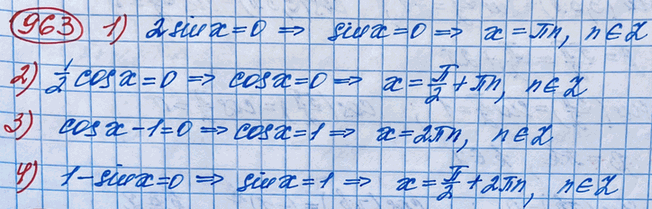 963 1) 2sinx=0 ⇒ sinx=0 ⇒ x=πn, n∈Z
2) 1/2 cosx=0 ⇒ cosx=0 ⇒ x=π/2+πn, n∈Z
3) cosx-1=0 ⇒ cosx=1 ⇒ x=2πn, n∈Z
4) 1-sinx=0 ⇒ sinx=1 ⇒ x=π/2+2πn, n∈Z